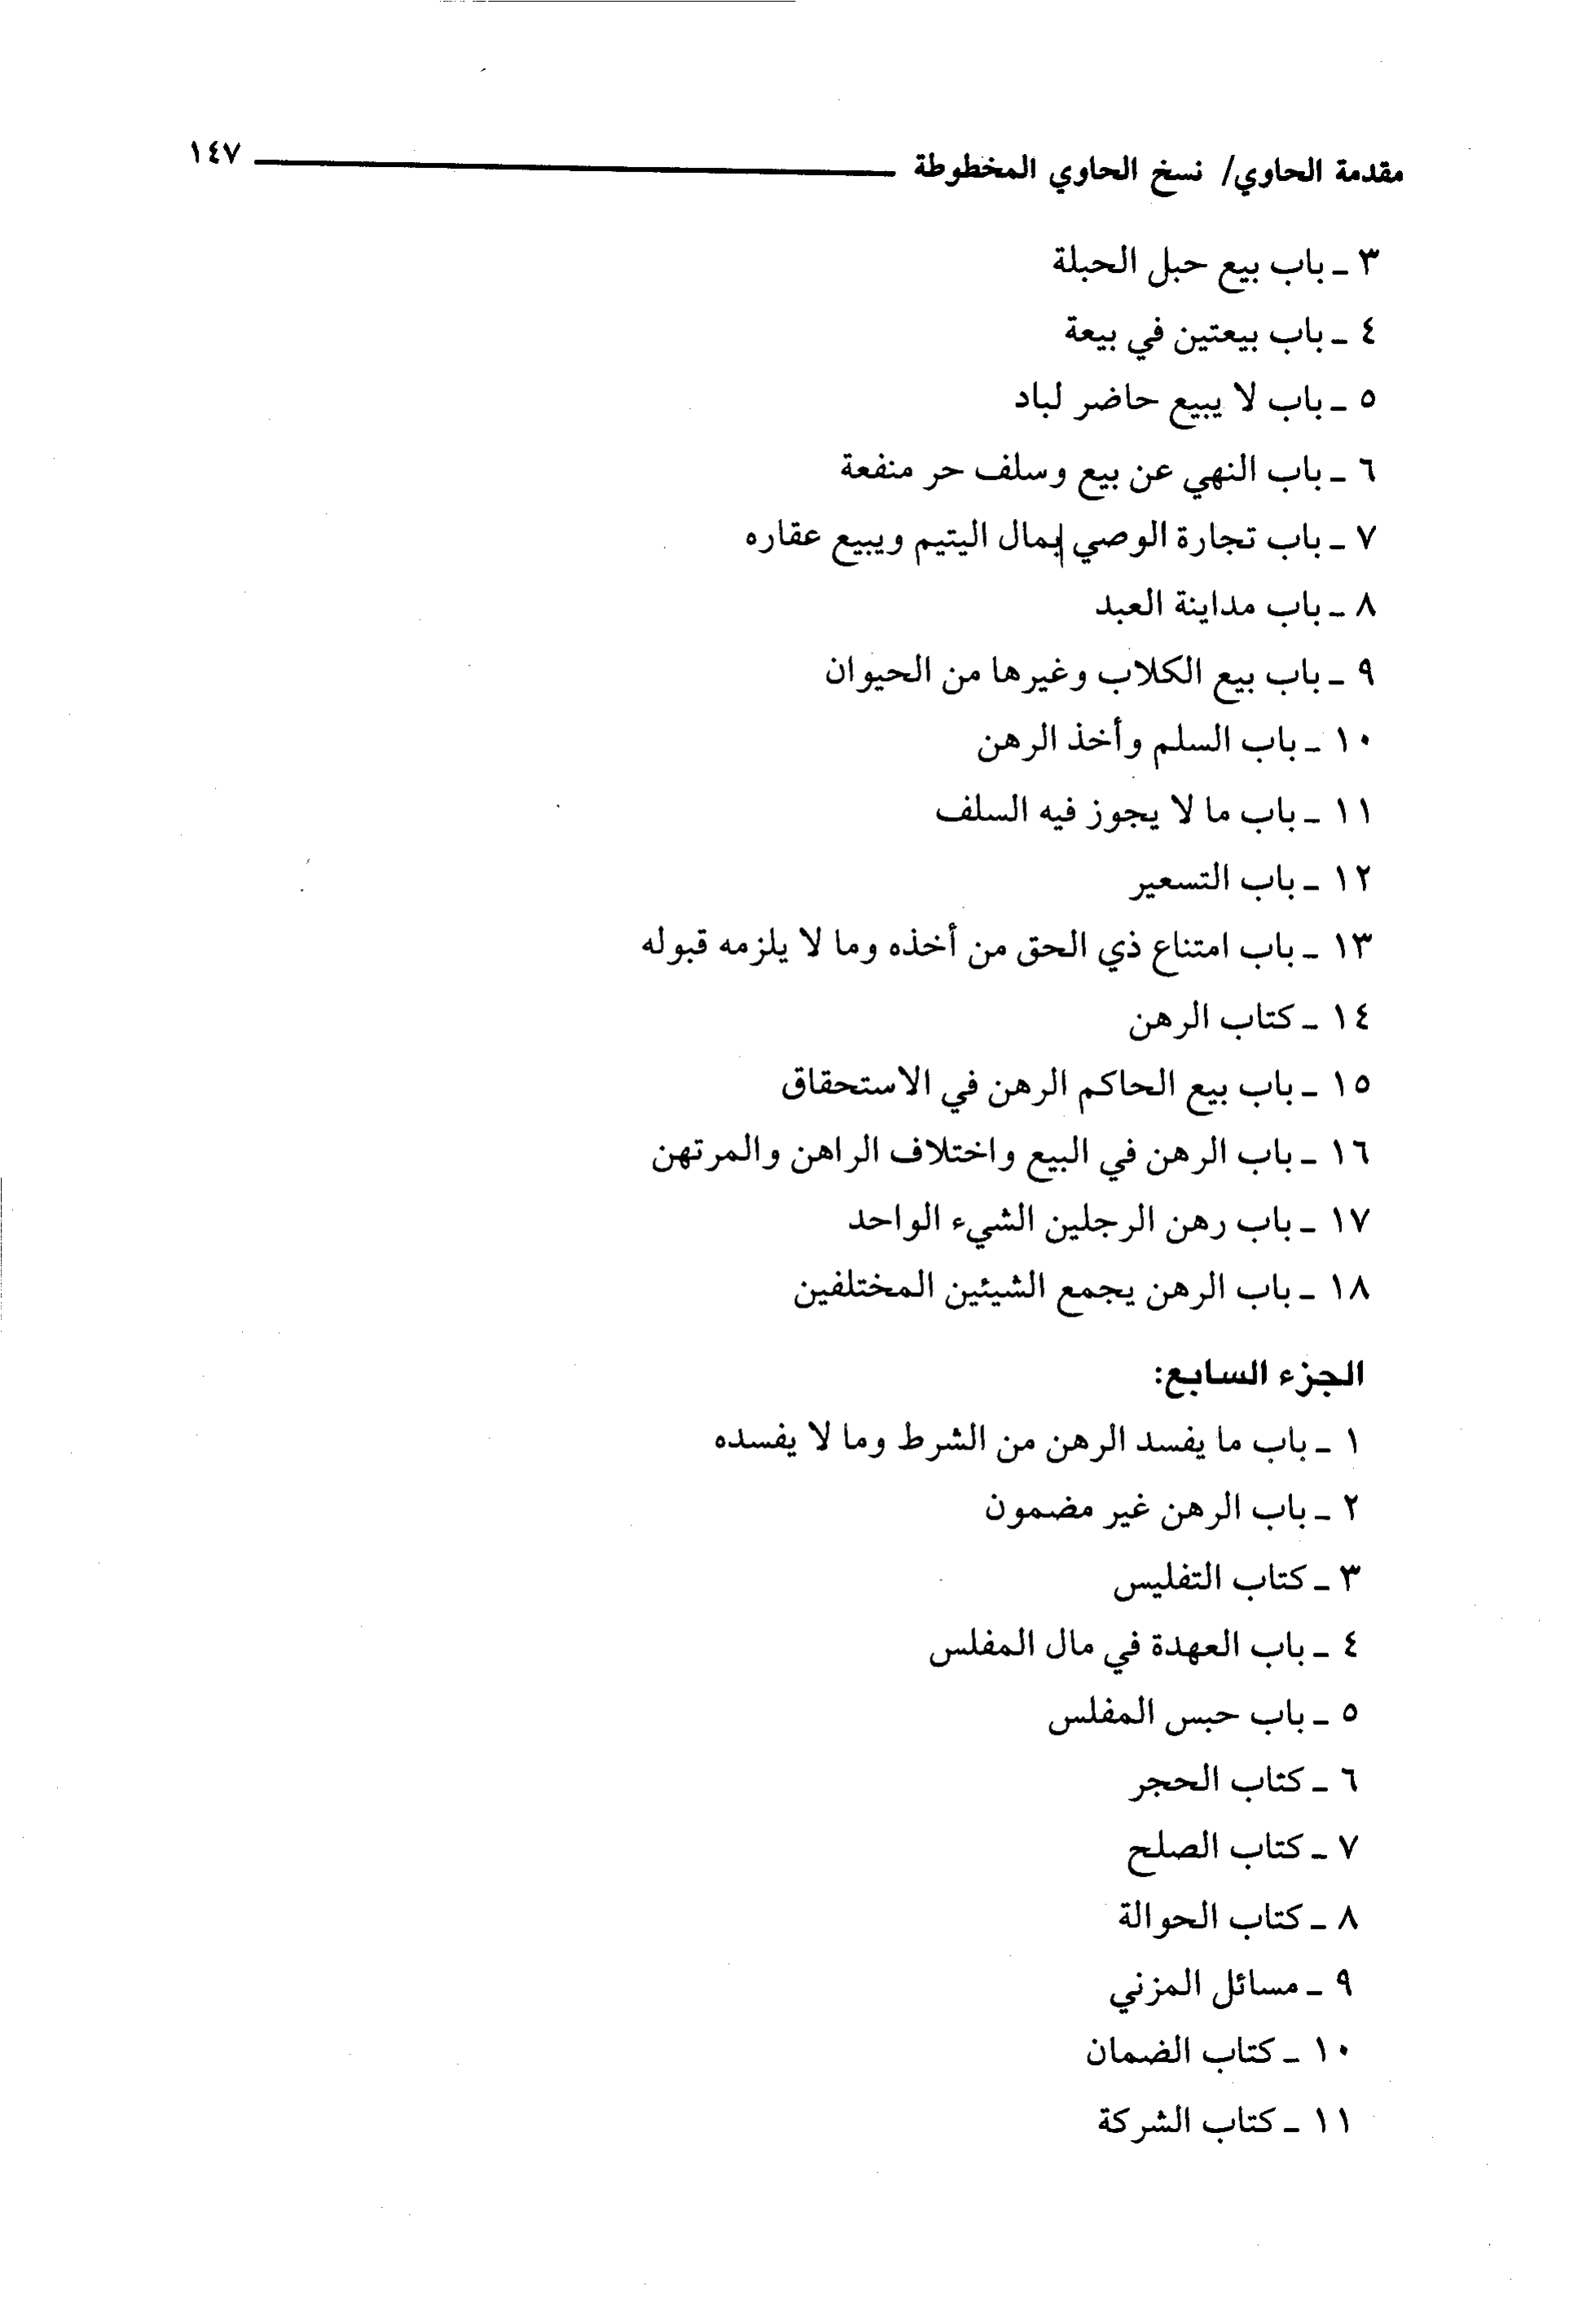 مقدمة الحاوي/ نسخ الحاوي المخطوطة ١٤٧
٣ - باب بيع حبل الحبلة
٤ - باب بيعتين في بيعة
٥ - باب لا يبيع حاضر لباد
٦ - باب النهي عن بيع وسلف حر منفعة
٧ - باب تجارة الوصي بمال اليتيم ويبيع عقاره
٨ - باب مداينة العبد
٩ - باب بيع الكلاب وغيرها من الحيوان
١٠ - باب السلم وأخذ الرهن
١١ - باب ما لا يجوز فيه السلف
١٢ - باب التسعير
١٣ - باب امتناع ذي الحق من أخذه وما لا يلزمه قبوله
١٤ - كتاب الرهن
١٥ - باب بيع الحاكم الرهن في الاستحقاق
١٦ - باب الرهن في البيع واختلاف الراهن والمرتهن
١٧ - باب رهن الرجلين الشيء الواحد
١٨ - باب الرهن يجمع الشيئين المختلفين
الجزء السابع:
١ - باب ما يفسد الرهن من الشرط وما لا يفسده
٢ - باب الرهن غير مضمون
٣ - كتاب التفليس
٤ - باب العهدة في مال المفلس
٥ - باب حبس المفلس
٦ - كتاب الحجر
٧ - كتاب الصلح
٨ - كتاب الحوالة
٩ - مسائل المزني
١٠ - كتاب الضمان
١١ - كتاب الشركة